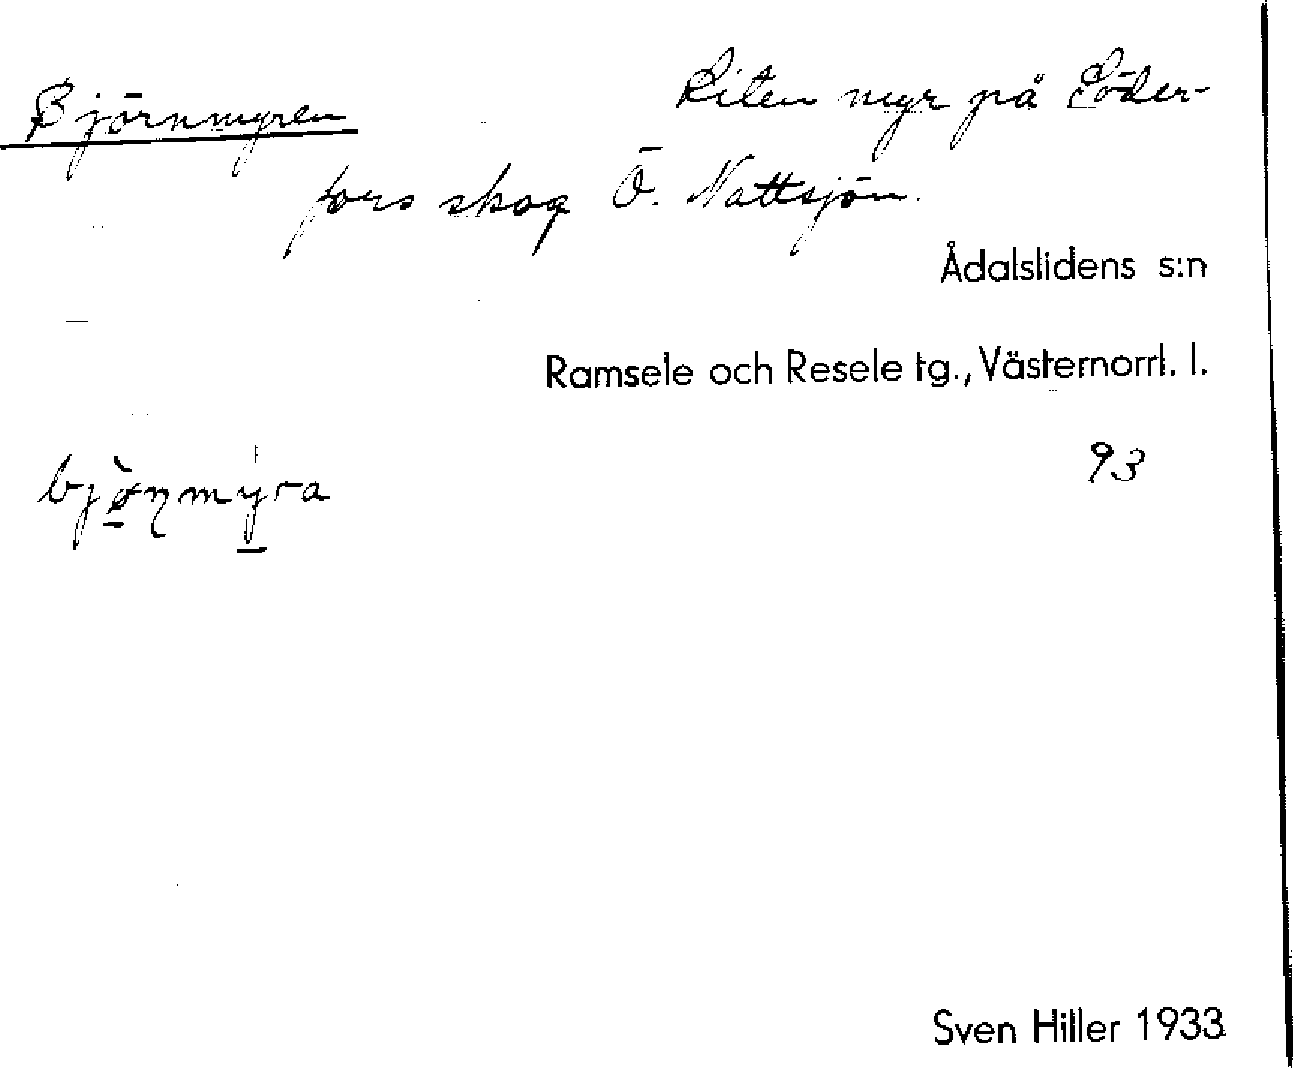 Björnmyren
Liten myr på Söder-
fors skog Ö. Nattsjön.
Ådalslidens s:n
Ramsele och Resele tg., Västernorrl. l.
93
Sven Hiller 1933